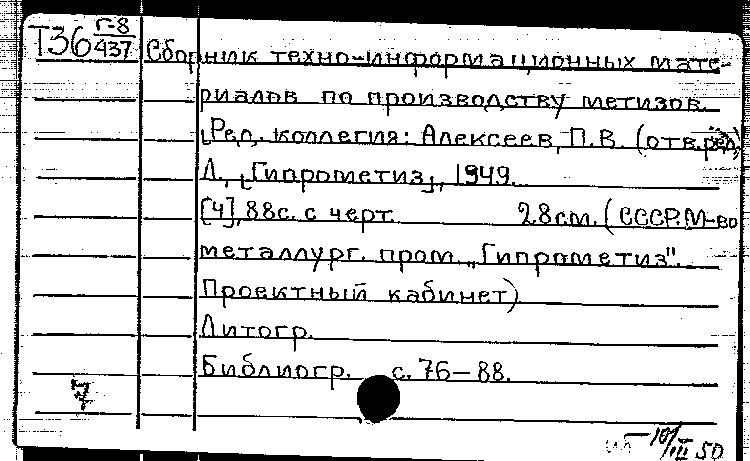 Т36 Г-8/437 Сборник техно-информационных мате-
риалов по производству метизов.
[Ред. коллегия: Алексеев, П.В. (отв. ред.)
Л., [„Гипрометиз„], 1949.
[4], 88с. с черт. 28см. (СССР. М-во
металлург. пром. „Гипрометиз".
Проектный кабинет)
Литогр.
Библиогр. с. 76–88.
7
10/III 50